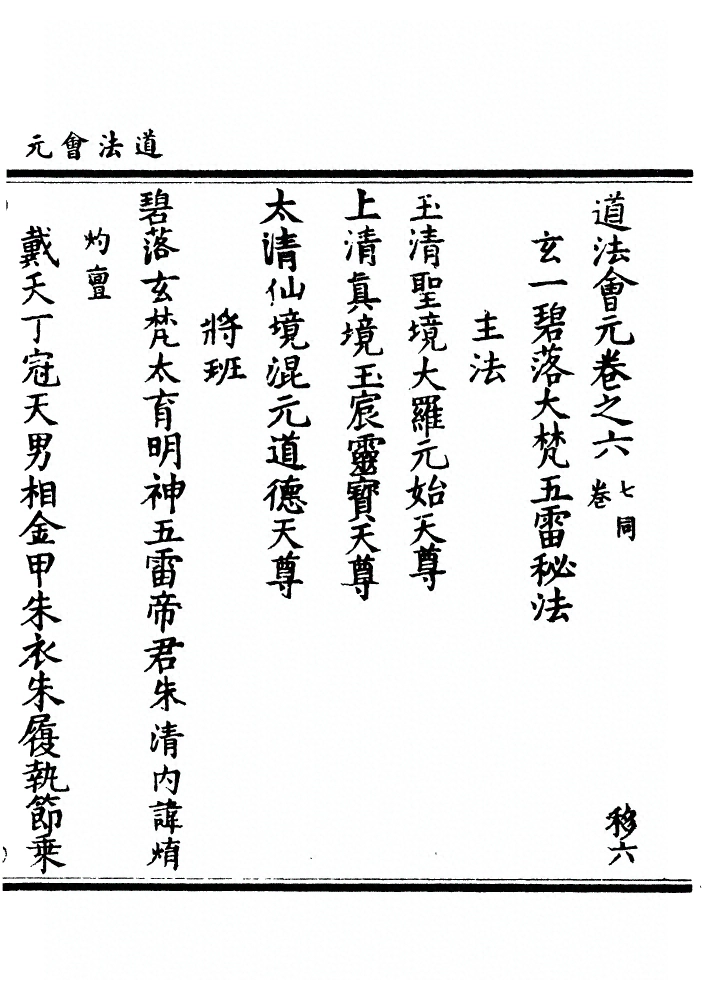 道法會元
道法會元卷之六
七同
卷
移六
玄一碧落大梵五雷秘法
主法
玉清聖境大羅元始天尊
上清真境玉宸靈寶天尊
太清仙境混元道德天尊
將班
碧落玄梵太育明神五雷帝君朱清内諱焴
灼亶
戴天丁冠天男相金甲朱衣朱履執節乗